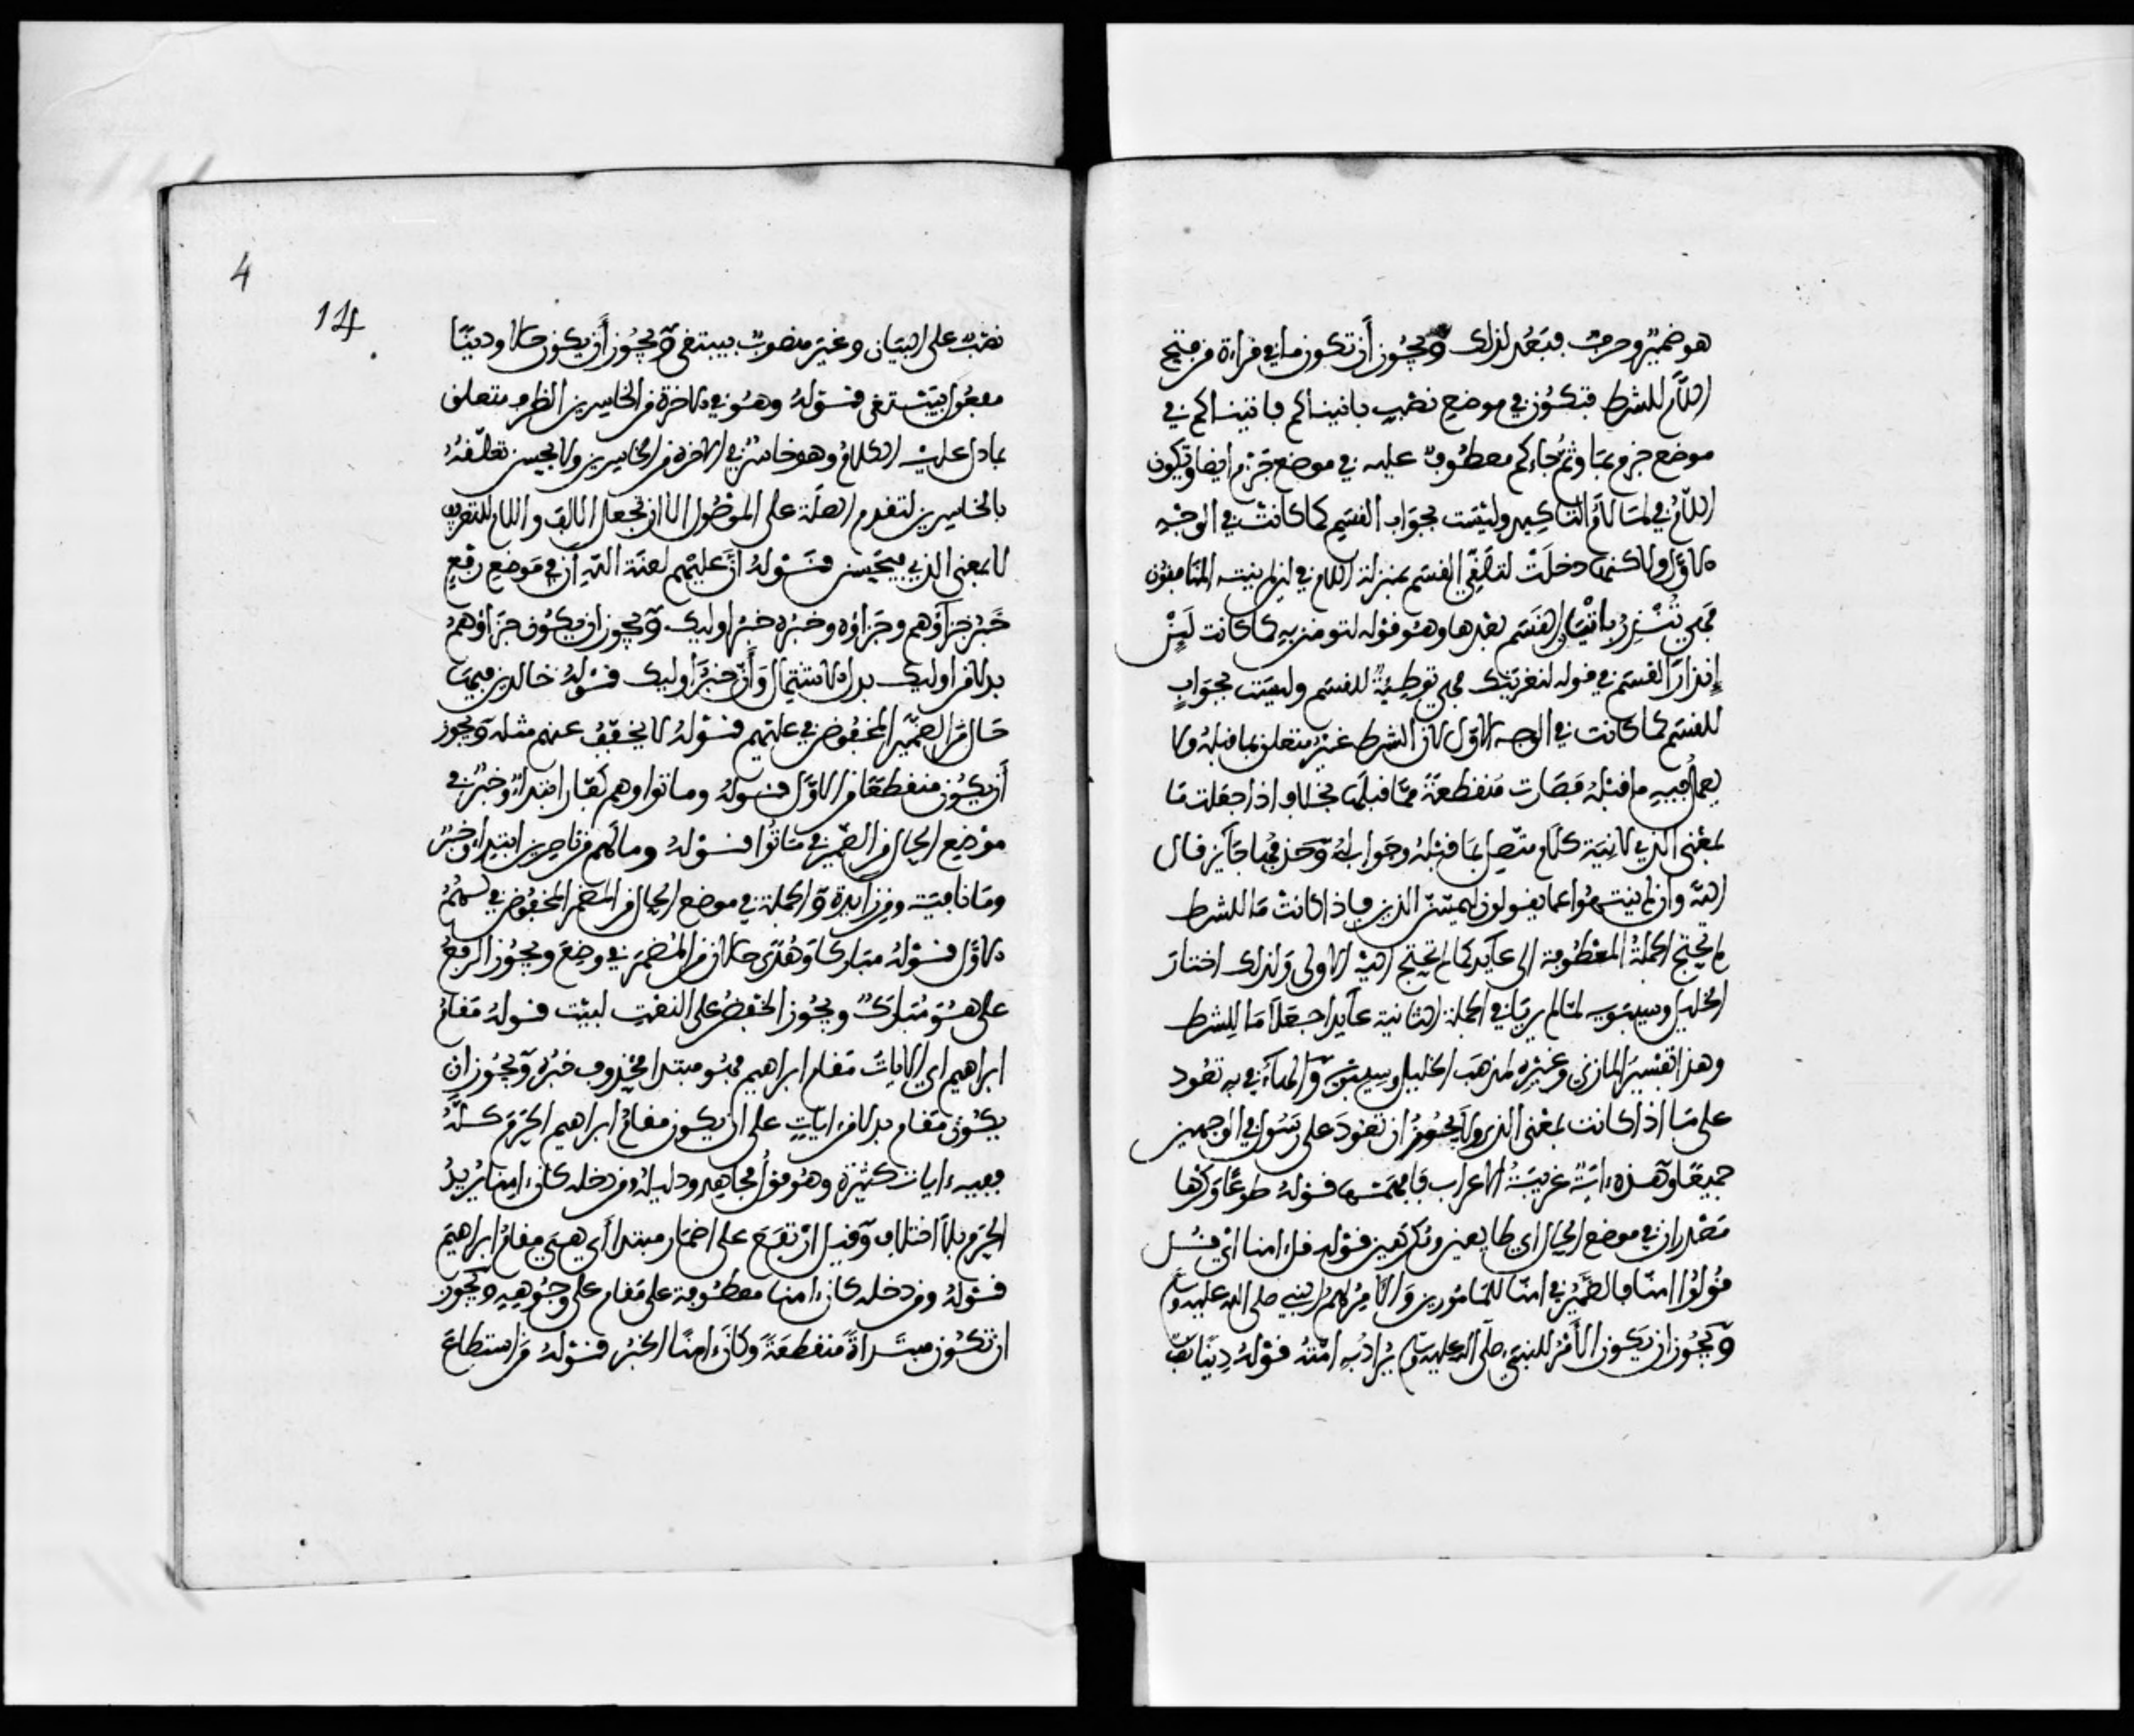 هو ضمير وحرف فبعد لذلك ويجوز أن تكون ما في قراءة من فتح
اللام للشرط فتكون في موضع نصب بآتيناكم فآتيناكم في
موضع جزم بما وثم جاءكم معطوف عليه في موضع جزم أيضا وتكون
اللام في لما لام التأكيد وليست بجواب القسم كما كانت في الوجه
الاول ولاكنها دخلت لتلقي القسم بمنزلة اللام في لئن لم ينته المنافقون
فهي تنذر بإتيان القسم بعدها وهو قوله لتومنن به كما كانت لئن
إنذار القسم في قوله لنغرينك فهي توطئة للقسم وليست بجواب
للقسم كما كانت في الوجه الاول لان الشرط غير متعلق بما قبله ولا
يعمل فيه ما قبله فصارت منقطعة مما قبلها بخلاف اذا جعلت ما
بمعنى الذي لانه كلام متصل بما قبله وجواب له وحذفها جائز قال
الله وان لم ينتهوا عما يقولون ليمسن الذين فإذا كانت ما للشرط
لم تحتج الجملة المعطوفة الى عايد كما لم تحتج اليه الاولى ولذلك اختار
الخليل وسيبويه لما لم يريا في الجملة الثانية عايدا جعلا ما للشرط
وهذا تفسير المازني وغيره لمذهب الخليل وسيبويه والهاء في به تعود
على ما اذا كانت بمعنى الذي ولا يجوز ان تعود على رسول في الوجهين
جميعا وهذه ءاية غريبة الاعراب فافهمها قوله طوعا وكرها
مصدران في موضع الحال اي طايعين ومكرهين قوله قل ءامنا اي قل
قولوا ءامنا فالضمير في ءامنا للمامورين والآمر لهم النبي صلى الله عليه وسلم
ويجوز ان يكون الأمر للنبي صلى الله عليه وسلم يراد به امته قوله دينا نصب
4
14
نصب على البيان وغير منصوب بيبتغي ويجوز أن يكون حالا ودينا
مفعولا بيبتغي قوله وهو في الاخرة من الخاسرين الظرف متعلق
بما دل عليه الكلام وهو خاسر في الاخرة من الخاسرين ولا يحسن تعلقه
بالخاسرين لتقدم الصلة على الموصول الا ان تجعل الالف واللام للتعريف
لا بمعنى الذي فيحسن قوله أن عليهم لعنة الله أن في موضع رفع
خبر جزاؤهم وجزاؤه وخبره خبر اوليك ويجوز ان يكون جزاؤهم
بدلا من اوليك بدل الاشتمال وأن خبر اوليك قوله خالدين فيها
حال من الضمير المخفوض في عليهم قوله لا يخفف عنهم مثله ويجوز
أن يكون منقطعا من الاول قوله وماتوا وهم كفار ابتداء وخبر في
موضع الحال من الضمير في ماتوا قوله وما لهم من ناصرين ابتداء وخبر
وما نافية ومن زايدة والجملة في موضع الحال من المضمر المخفوض في لهم
الاول قوله مباركا وهدى حالان من المضمر في وضع ويجوز الرفع
على هو مبارك ويجوز الخفض على النعت لبيت قوله مقام
ابراهيم اي الايات مقام ابراهيم فهو مبتدا محذوف خبره ويجوز ان
يكون مقام بدلا من ءايات على ان يكون مقام ابراهيم الحرم كله
ففيه ءايات كثيرة وهو قول مجاهد ودليله ومن دخله كان ءامنا يريد
الحرم بلا اختلاف وقيل ارتفع على اضمار مبتدا أي هي مقام ابراهيم
قوله ومن دخله كان ءامنا معطوفة على مقام على وجوهه ويجوز
ان تكون مبتدأة منقطعة وكان ءامنا الخبر قوله من استطاع